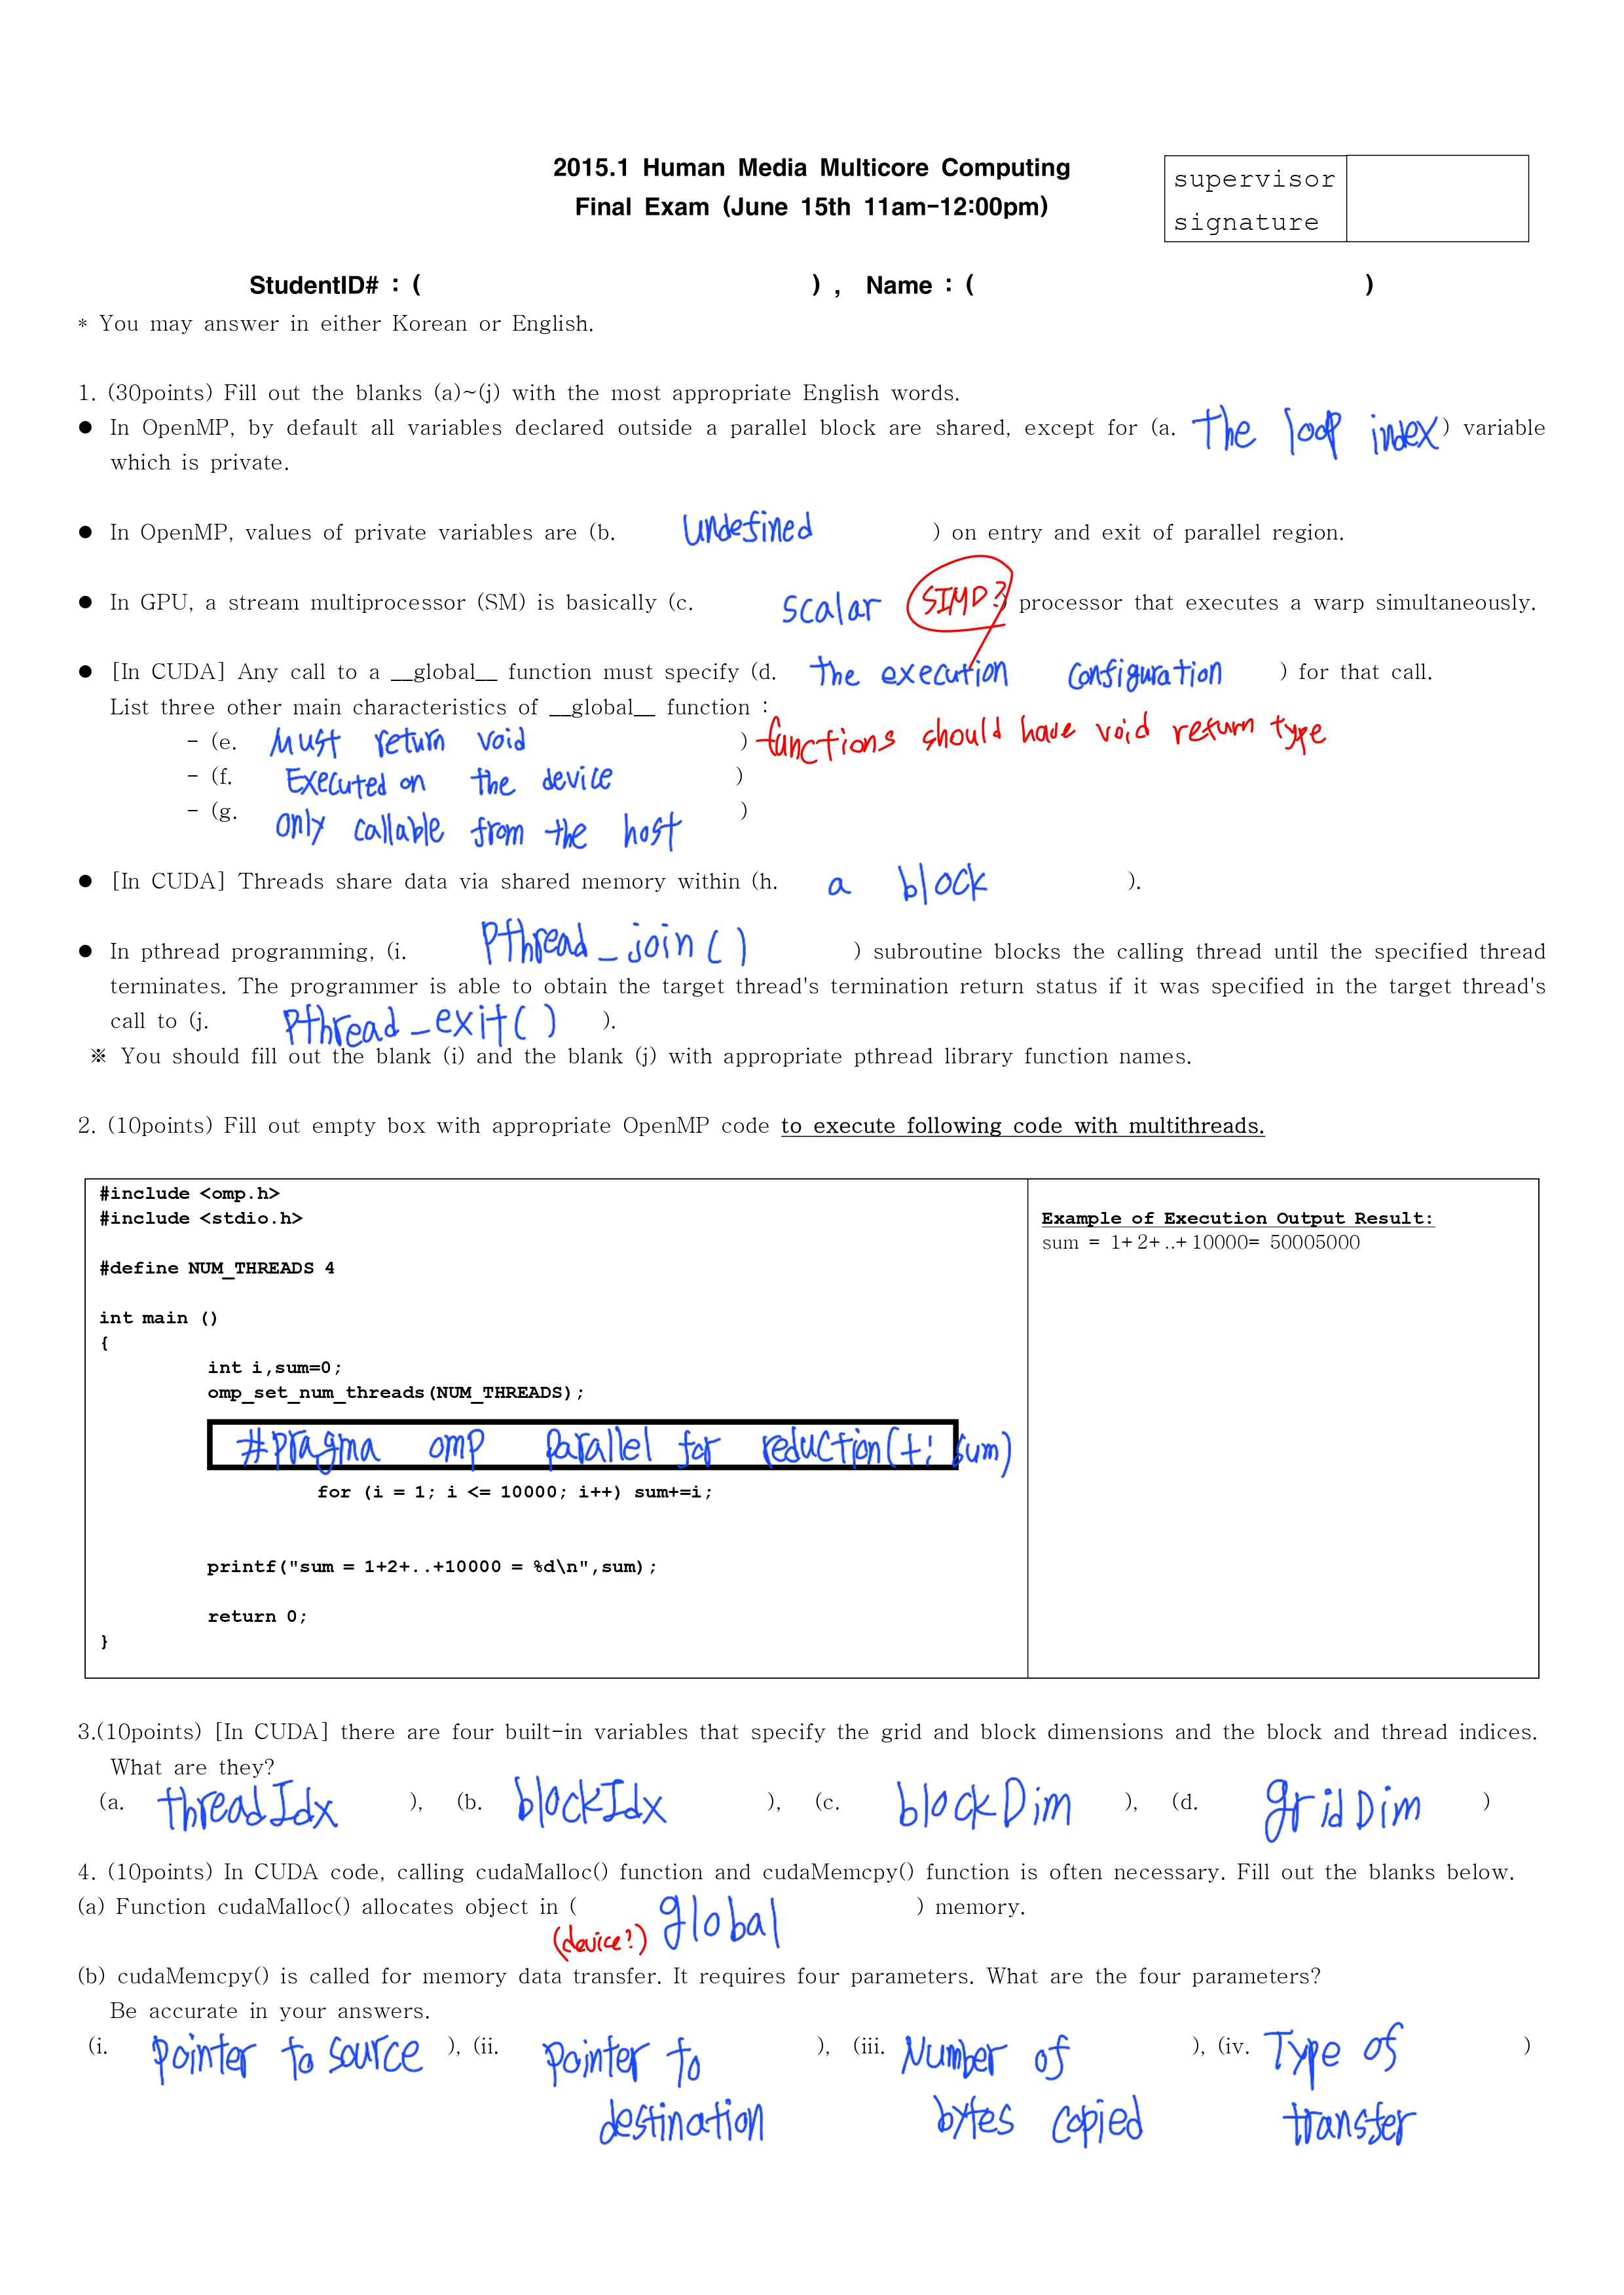 2015.1 Human Media Multicore Computing
Final Exam (June 15th 11am-12:00pm)
supervisor
signature
StudentID# : ( ) , Name : ( )
* You may answer in either Korean or English.
1. (30points) Fill out the blanks (a)~(j) with the most appropriate English words.
● In OpenMP, by default all variables declared outside a parallel block are shared, except for (a. the loop index) variable
which is private.
● In OpenMP, values of private variables are (b. undefined ) on entry and exit of parallel region.
● In GPU, a stream multiprocessor (SM) is basically (c. scalar SIMD? ) processor that executes a warp simultaneously.
● [In CUDA] Any call to a __global__ function must specify (d. the execution configuration ) for that call.
List three other main characteristics of __global__ function :
- (e. Must return void ) functions should have void return type
- (f. Executed on the device )
- (g. only callable from the host )
● [In CUDA] Threads share data via shared memory within (h. a block ).
● In pthread programming, (i. Pthread_join() ) subroutine blocks the calling thread until the specified thread
terminates. The programmer is able to obtain the target thread's termination return status if it was specified in the target thread's
call to (j. Pthread_exit() ).
※ You should fill out the blank (i) and the blank (j) with appropriate pthread library function names.
2. (10points) Fill out empty box with appropriate OpenMP code to execute following code with multithreads.
#include <omp.h>
#include <stdio.h>
#define NUM_THREADS 4
int main ()
{
int i,sum=0;
omp_set_num_threads(NUM_THREADS);
#pragma omp parallel for reduction(+: sum)
for (i = 1; i <= 10000; i++) sum+=i;
printf("sum = 1+2+..+10000 = %d\n",sum);
return 0;
}
Example of Execution Output Result:
sum = 1+2+..+10000= 50005000
3.(10points) [In CUDA] there are four built-in variables that specify the grid and block dimensions and the block and thread indices.
What are they?
(a. threadIdx ), (b. blockIdx ), (c. blockDim ), (d. gridDim )
4. (10points) In CUDA code, calling cudaMalloc() function and cudaMemcpy() function is often necessary. Fill out the blanks below.
(a) Function cudaMalloc() allocates object in ( global ) memory.
(device?)
(b) cudaMemcpy() is called for memory data transfer. It requires four parameters. What are the four parameters?
Be accurate in your answers.
(i. pointer to source ), (ii. pointer to ), (iii. Number of ), (iv. Type of )
destination bytes copied transfer